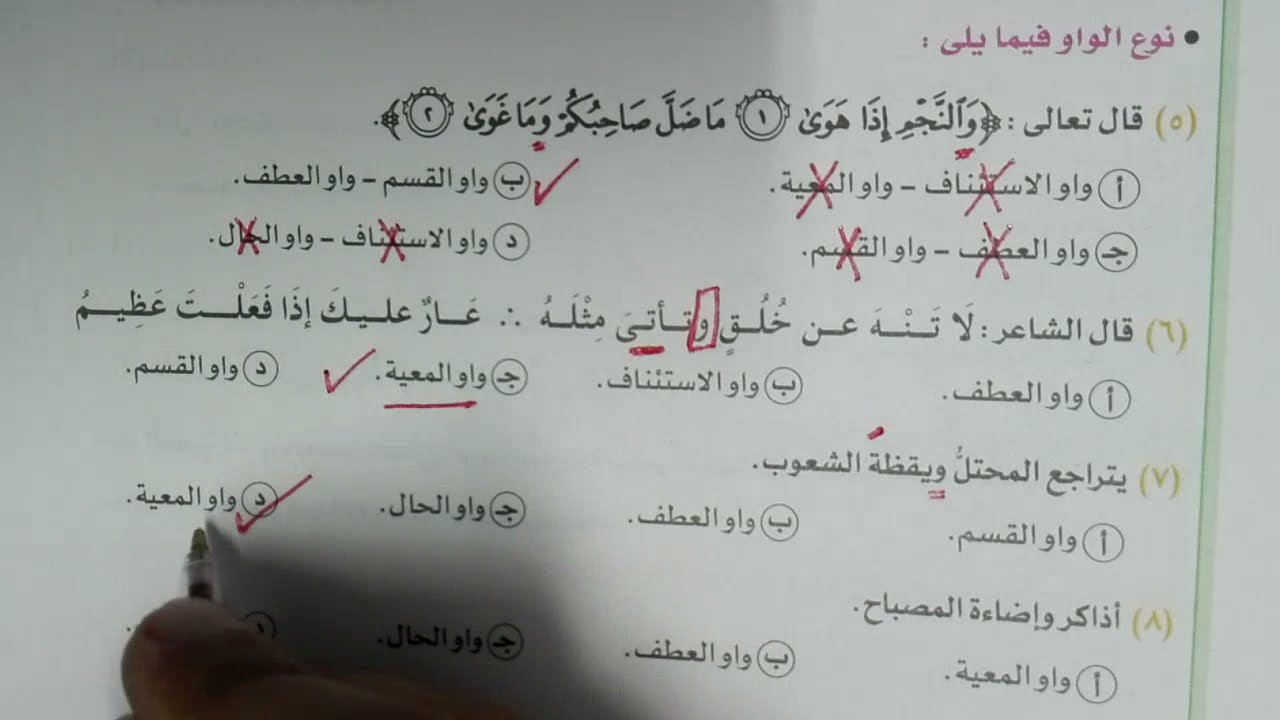 • نوع الواو فيما يلى :
(٥) قال تعالى : ﴿وَٱلنَّجْمِ إِذَا هَوَىٰ ١ مَا ضَلَّ صَاحِبُكُمْ وَمَا غَوَىٰ ٢﴾.
أ واو الاستئناف – واو المعية. ب واو القسم – واو العطف.
جـ واو العطف – واو القسم. د واو الاستئناف – واو الحال.
(٦) قال الشاعر : لَا تَـنْـهَ عـن خُلُـقٍ وتـأتىَ مِثْلَـهُ ∴ عَـارٌ عليـكَ إذَا فَعَلْـتَ عَظِيـمُ
أ واو العطف. ب واو الاستئناف. جـ واو المعية. د واو القسم.
(٧) يتراجع المحتلُّ ويقظةَ الشعوب.
أ واو القسم. ب واو العطف. جـ واو الحال. د واو المعية.
(٨) أذاكر وإضاءة المصباح.
أ واو المعية. ب واو العطف. جـ واو الحال. د